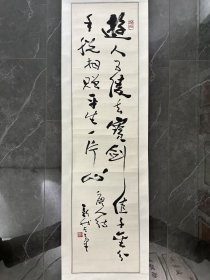 遊人五陵去寶劍值千金分
手脫相贈平生一片心
唐人詩